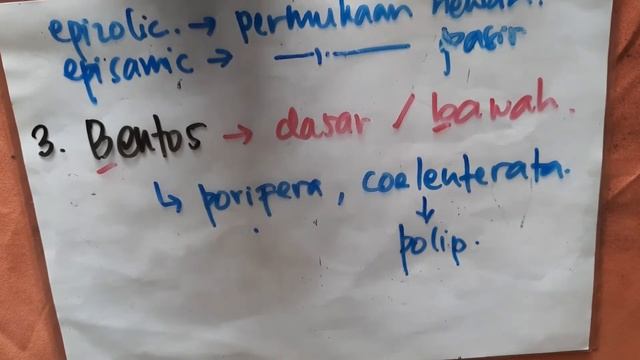 epizolic. → permukaan hewan.
episamic → —||— pasir
3. Bentos → dasar / bawah.
↳ poripera, coelenterata.
↓
polip.